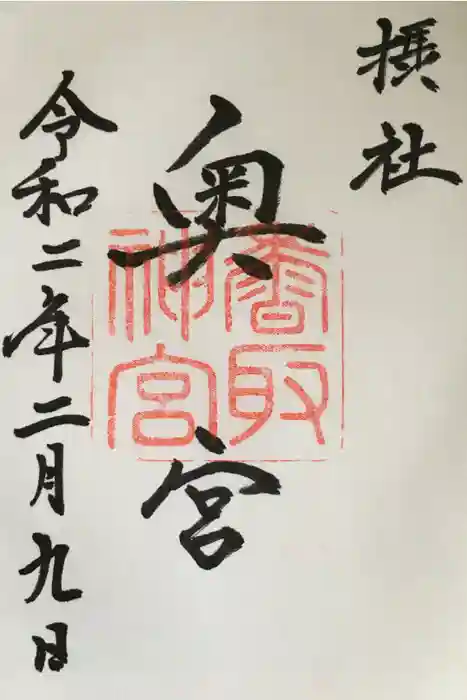 摂社
奥宮
香取神宮
令和二年二月九日